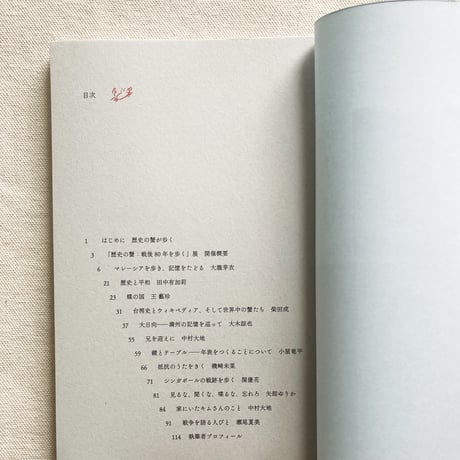 目次
1 はじめに 歴史の蟹が歩く
3 「歴史の蟹：戦後80年を歩く」展 開催概要
6 マレーシアを歩き、記憶をたどる 大庭芽衣
21 歴史と平和 田中有加莉
23 蝶の国 王 藝珍
31 台湾史とウィキペディア、そして世界中の蟹たち 柴田成
37 大日向——満州の記憶を巡って 大木諒也
55 兄を迎えに 中村大地
59 線とテーブル——年表をつくることについて 小屋竜平
66 抵抗のうたをきく 磯崎未菜
71 シンガポールの戦跡を歩く 関優花
81 見るな、聞くな、喋るな、忘れろ 矢部ゆりか
84 家にいたキムさんのこと 中村大地
91 戦争を語る人びと 瀬尾夏美
114 執筆者プロフィール